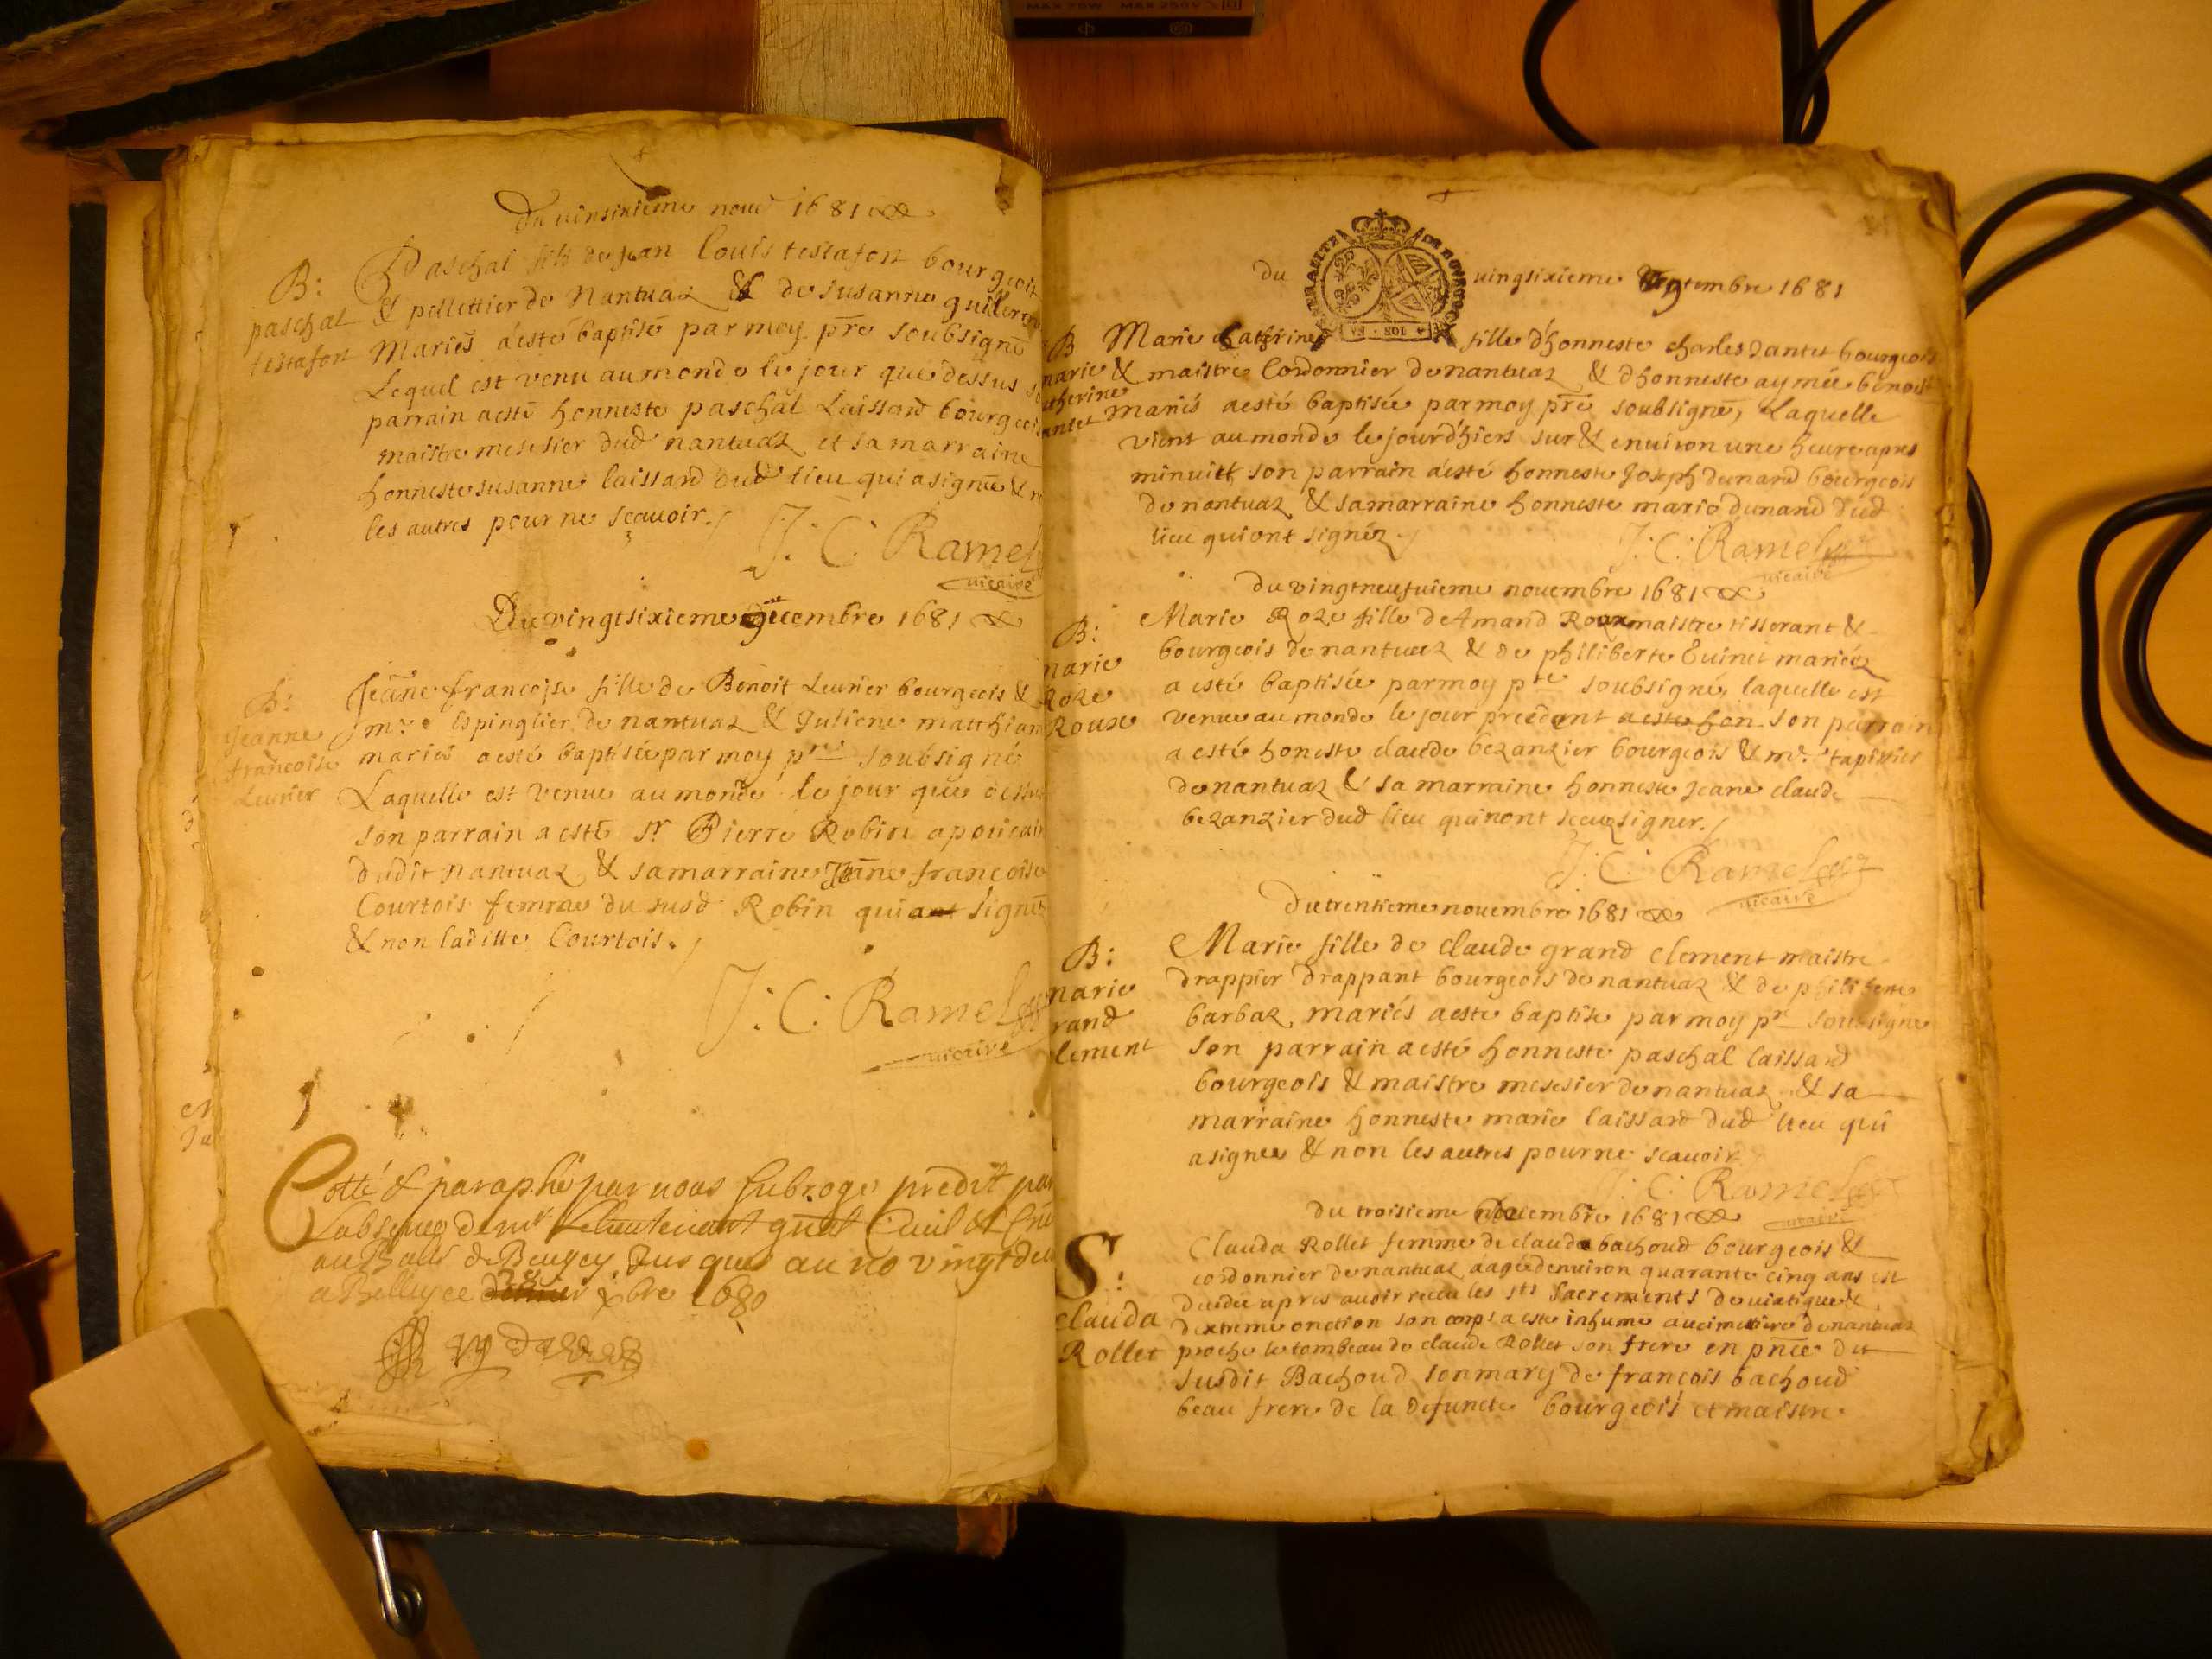 Du vinsixieme nouë 1681
B:
paschal
testafort
Paschal fils de jean Louis testafort bourgeois
& pellettier de Nantuaz & de susanne guillermo
Mariés a esté baptisé par moy pre soubsigné
Lequel est venu au monde le jour que dessus so
parrain a esté honneste paschal Laissard bourgeois
maistre mesesier dud nantuaz et sa marraine
honneste susanne laissard dud lieu qui a signée & n
les autres pour ne scauoir.
J: C: Ramel
uicaire
Du vingtsixieme 9uembre 1681
B:
Jeanne
francoise
Leurier
Jeane francoise fille de Benoit Leurier bourgeois &
mre Espinglier de nantuaz & Juliene matthian
mariés a esté baptisée par moy pre soubsigné
Laquelle est venue au monde le jour que dessus
son parrain a esté sr Pierre Robin apoticair
dudit nantuaz & sa marraine Jeane francoise
Courtois femme du susd Robin qui ont signé
& non laditte Courtois.
J: C: Ramel
uicaire
Cotté & paraphé par nous subrogé predit par
Labsence de mr Le lieutenant gnal Ciuil & Crim
au Baill de Beugey Jusques au no vingtdeu
a Belley ce xbre 1680
GENERALITE DE BOURGOG
SOL
du vingsixieme 1681
B
marie
catherine
antet
Marie Catherine fille d'honneste charles dantet bourgeois
& maistre Cordonnier de nantuaz & dhonneste aymée benoist
mariés a esté baptisée par moy pre soubsigné, Laquelle
vient au monde le jourd'hiers sur & enuiron une heure apres
minuitt son parrain a esté honneste Joseph dunand bourgeois
de nantuaz & sa marraine honneste marie dunand dud
lieu qui ont signéz.
J: C: Ramel
uicaire
Du vingtneufuieme nouembre 1681
B:
marie
Roze
Roux
Marie Roze fille de Amand Roux maistre tisserant &
bourgeois de nantuaz & de philiberte Euinet mariéz
a esté baptisée par moy pre soubsigné, laquelle est
venue au monde le jour precedent a esté hon son parrain
a esté honeste claude bezanzier bourgeois & mr. tapissier
de nantuaz & sa marraine honneste Jeane claude
bezanzier dud lieu qui n'ont sceuz signer.
J: C: Ramel
uicaire
Du trentieme nouembre 1681
B:
marie
grand
clement
Marie fille de claude grand clement maistre
drappier drappant bourgeois de nantuaz & de philiberte
barbaz mariés a esté baptisé par moy pr soubsigne
son parrain a esté honneste paschal laissard
bourgeois & maistre mesesier de nantuaz & sa
marraine honneste marie laissard dud lieu qui
a signée & non les autres pour ne scauoir
J: C: Ramel
uicaire
Du troisieme decembre 1681
S:
clauda
Rollet
Clauda Rollet femme de claude bachoud bourgeois &
cordonnier de nantuaz aagée denuiron quarante cinq ans est
decedée apres auoir receu les sts Sacrements de viatique &
dextreme onction son corps a esté inhumé au cimetiere de nantuaz
proche le tombeau de claude Rollet son frere en pnce dit
susdit Bachoud son mary de francois bachoud
beau frere de la defuncte bourgeois et maistre